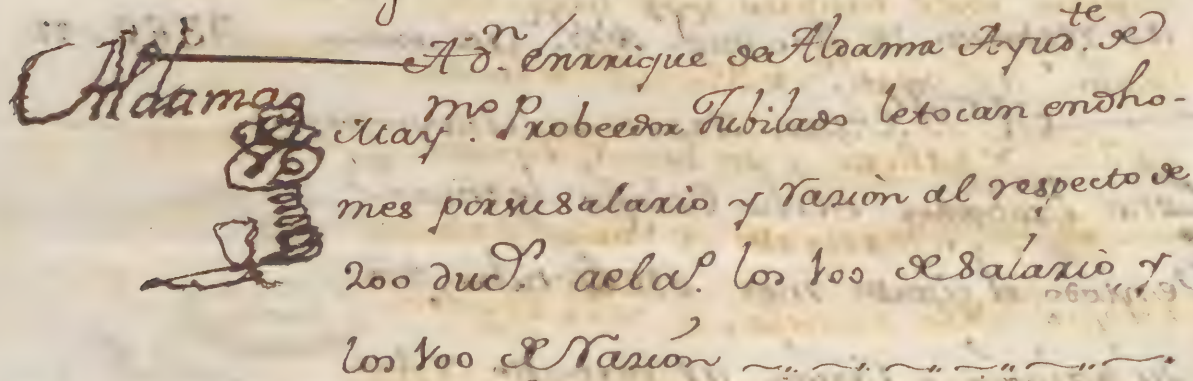 A Dⁿ. Enrrique de Aldama Ayudᵗᵉ. de
Aldama
Mayᵐᵒ Probeedor Jubilado le tocan en dho
mes por su salario y Razion al respecto de
200 ducᵒˢ. al aᵒ. los 100 de Salario y
los 100 de Razion